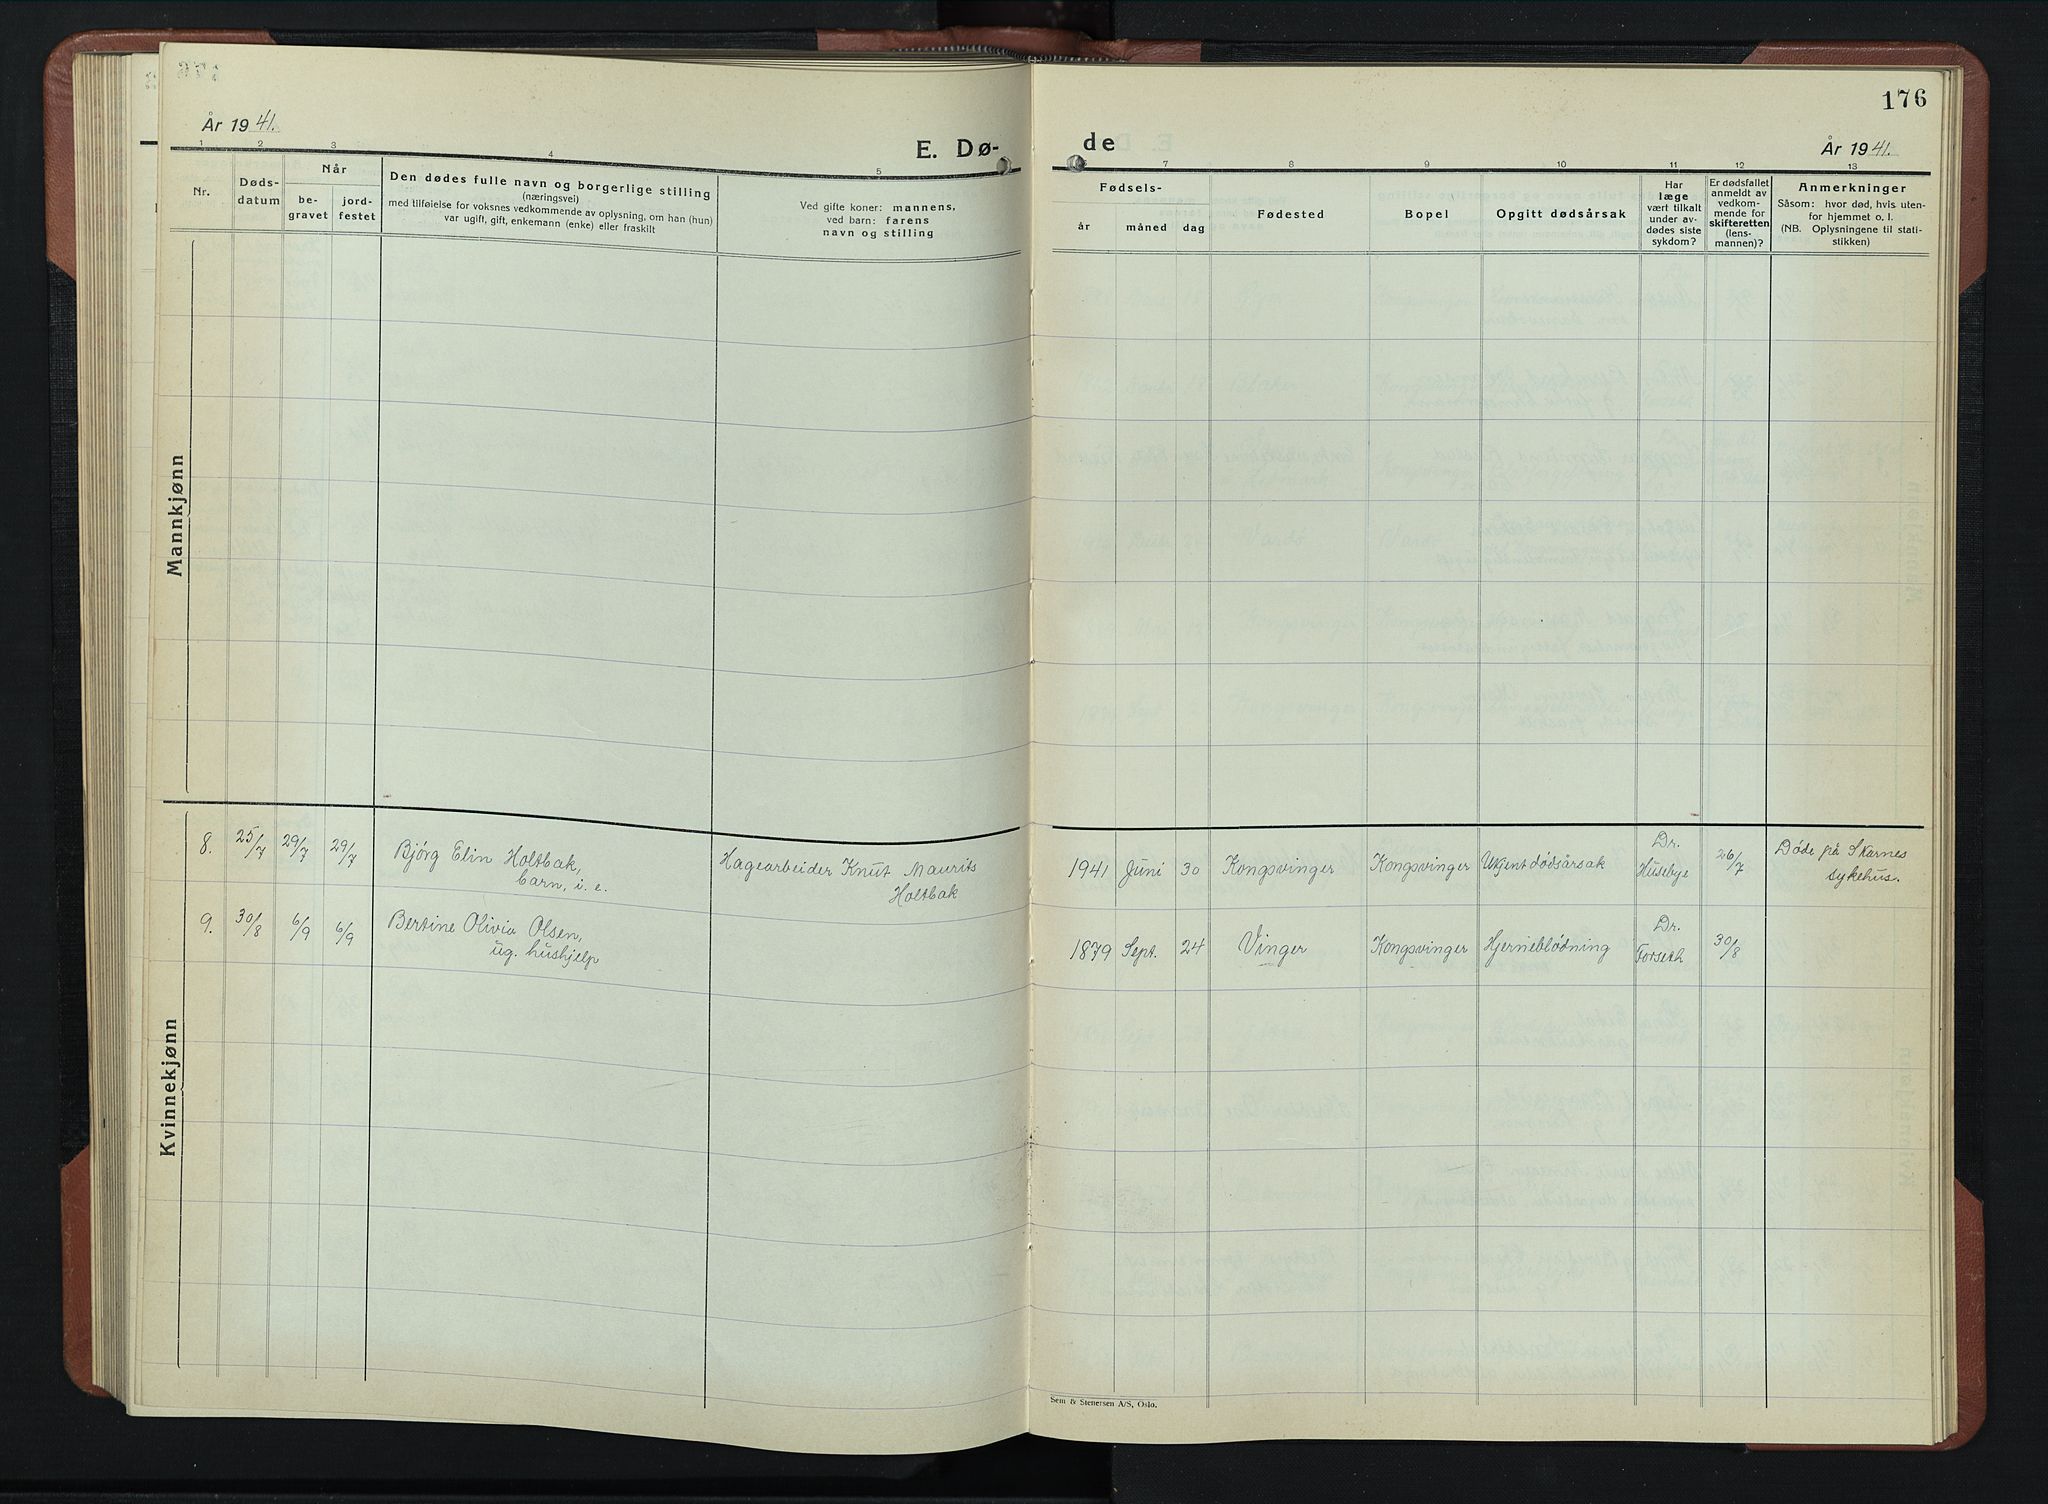 176
År 1941.
E. Dø-
de
År 1941.
1 2 3 4 5
7 8 9 10 11 12 13
Nr.
Døds-
datum
Når
be-
gravet
jord-
festet
Den dødes fulle navn og borgerlige stilling
(næringsvei)
med tilføielse for voksnes vedkommende av oplysning, om han (hun)
var ugift, gift, enkemann (enke) eller fraskilt
Ved gifte koner: mannens,
ved barn: farens
navn og stilling
Fødsels-
år måned dag
Fødested
Bopel
Opgitt dødsårsak
Har
læge
vært tilkalt
under av-
dødes siste
sykdom?
Er dødsfallet
anmeldt av
vedkom-
mende for
skifteretten
(lens-
mannen)?
Anmerkninger
Såsom: hvor død, hvis uten-
for hjemmet o. l.
(NB. Oplysningene til stati-
stikken)
Mannkjønn
Kvinnekjønn
8. 25/7 29/7 29/7 Bjørg Elin Holtbak,
barn, i. e.
Hagearbeider Knut Maurits
Holtbak
1941 Juni 30 Kongsvinger Kongsvinger Ukjent dødsårsak
Dr.
Husebye
26/7
Døde på Skarnes
sykehus.
9. 30/8 6/9 6/9 Bertine Olivia Olsen,
ug. hushjelp
1879 Sept. 24 Vinger Kongsvinger Hjerneblødning
Dr.
Forseth
30/8
Sem & Stenersen A/S, Oslo.